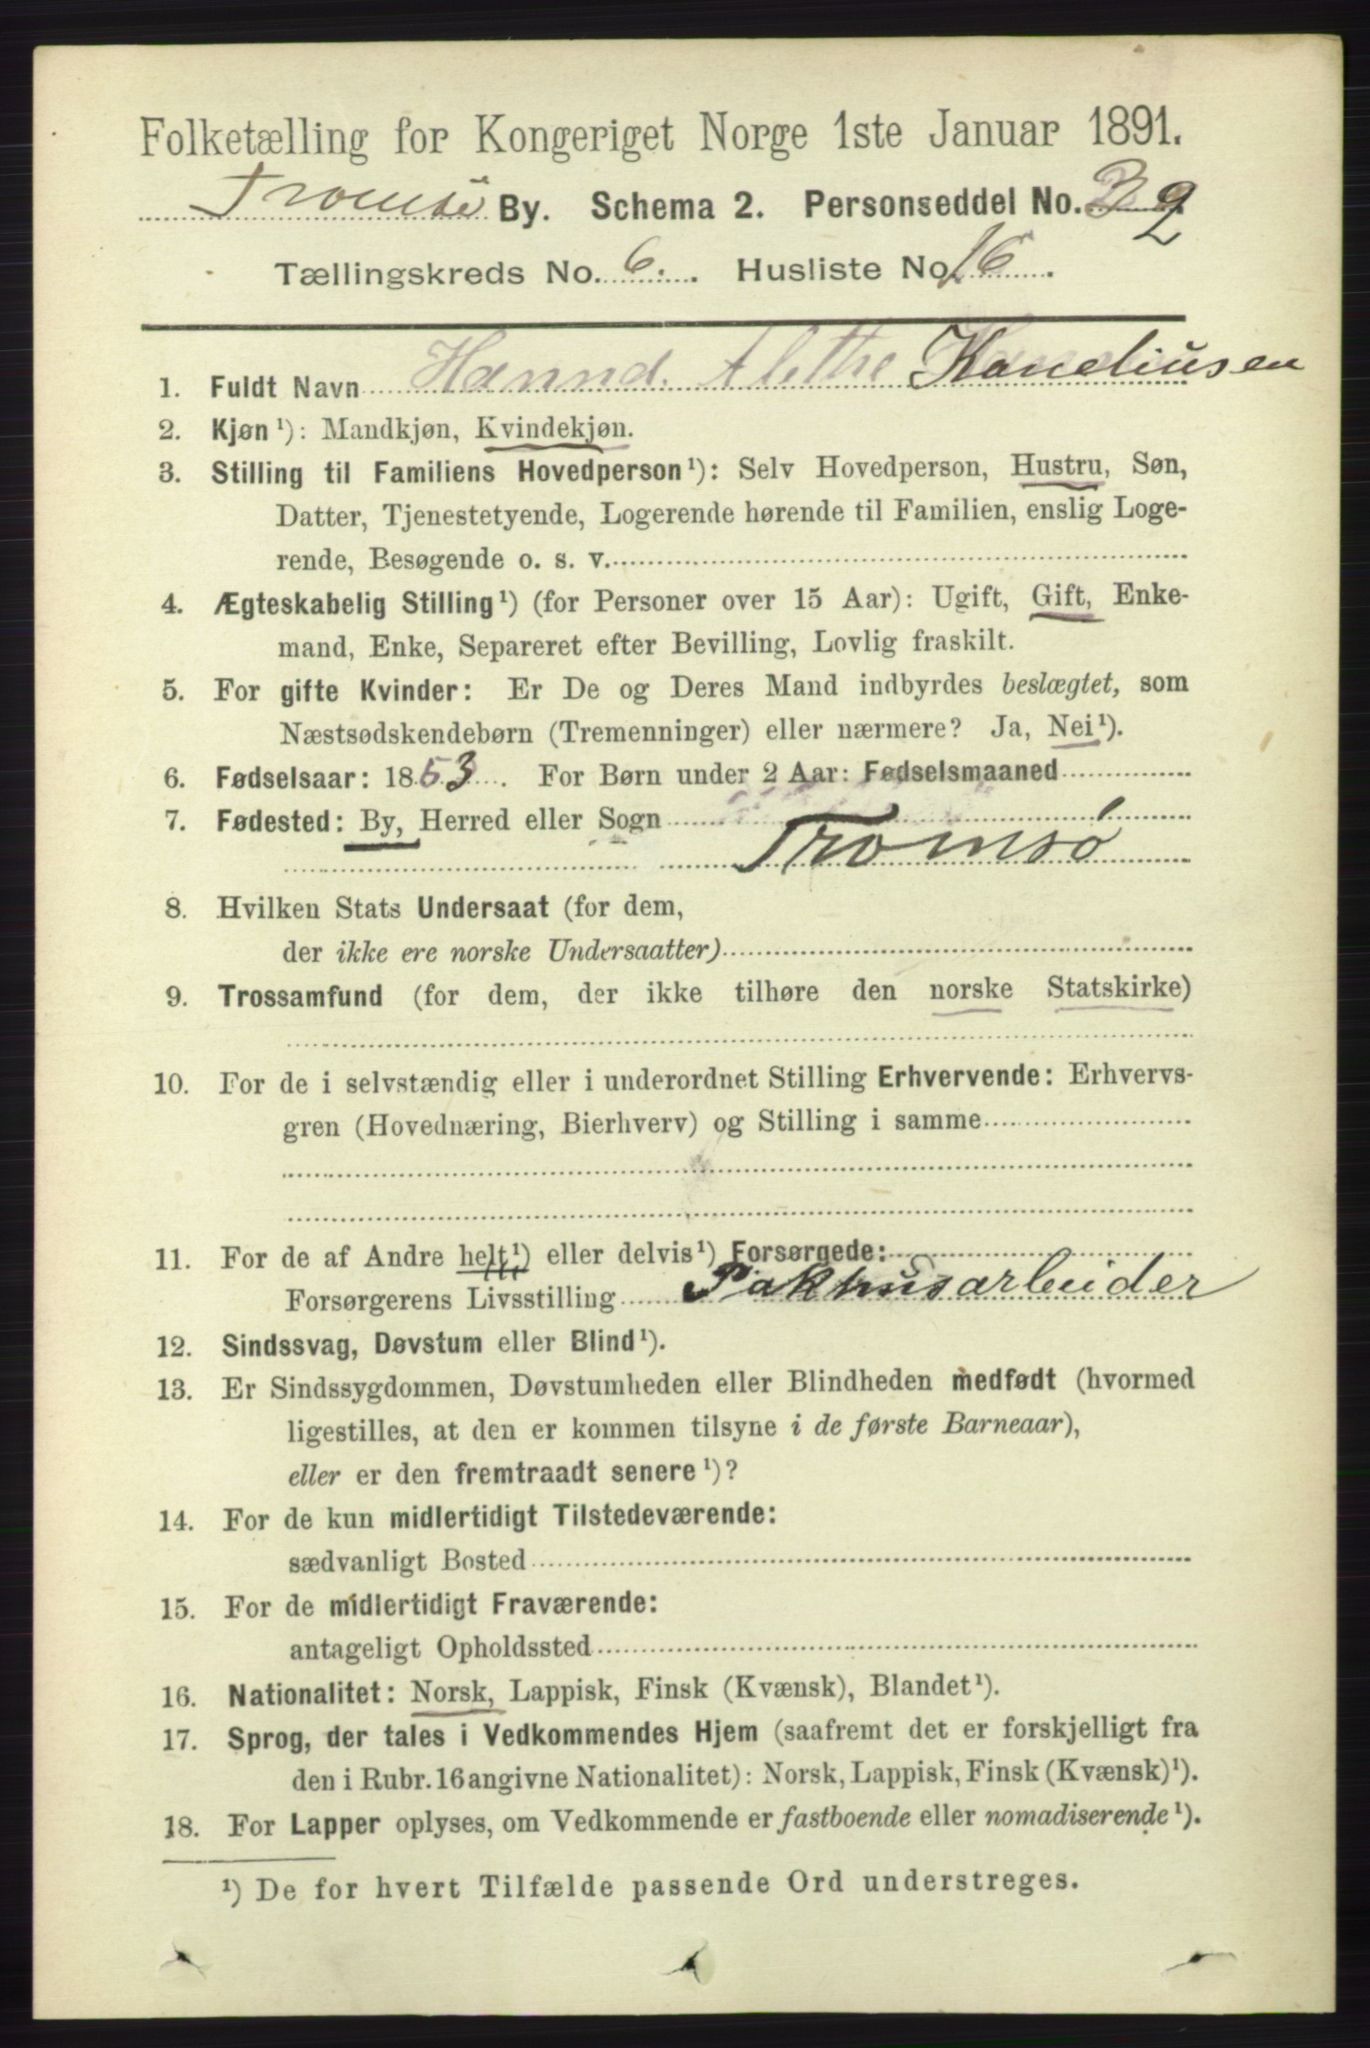 Folketælling for Kongeriget Norge 1ste Januar 1891.
Tromsø By. Schema 2. Personseddel No. 2
Tællingskreds No. 6. Husliste No. 16.
1. Fuldt Navn Hanna Alethe Kaneliusen
2. Kjøn¹): Mandkjøn, Kvindekjøn.
3. Stilling til Familiens Hovedperson¹): Selv Hovedperson, Hustru, Søn,
Datter, Tjenestetyende, Logerende hørende til Familien, enslig Loge-
rende, Besøgende o. s. v.
4. Ægteskabelig Stilling¹) (for Personer over 15 Aar): Ugift, Gift, Enke-
mand, Enke, Separeret efter Bevilling, Lovlig fraskilt.
5. For gifte Kvinder: Er De og Deres Mand indbyrdes beslægtet, som
Næstsødskendebørn (Tremenninger) eller nærmere? Ja, Nei¹).
6. Fødselsaar: 1853. For Børn under 2 Aar: Fødselsmaaned
7. Fødested: By, Herred eller Sogn
Tromsø
8. Hvilken Stats Undersaat (for dem,
der ikke ere norske Undersaatter)
9. Trossamfund (for dem, der ikke tilhøre den norske Statskirke)
10. For de i selvstændig eller i underordnet Stilling Erhvervende: Erhvervs-
gren (Hovednæring, Bierhverv) og Stilling i samme
11. For de af Andre helt¹) eller delvis¹) Forsørgede:
Forsørgerens Livsstilling Pakhusarbeider
12. Sindssvag, Døvstum eller Blind¹).
13. Er Sindssygdommen, Døvstumheden eller Blindheden medfødt (hvormed
ligestilles, at den er kommen tilsyne i de første Barneaar),
eller er den fremtraadt senere¹)?
14. For de kun midlertidigt Tilstedeværende:
sædvanligt Bosted
15. For de midlertidigt Fraværende:
antageligt Opholdssted
16. Nationalitet: Norsk, Lappisk, Finsk (Kvænsk), Blandet¹).
17. Sprog, der tales i Vedkommendes Hjem (saafremt det er forskjelligt fra
den i Rubr. 16 angivne Nationalitet): Norsk, Lappisk, Finsk (Kvænsk)¹).
18. For Lapper oplyses, om Vedkommende er fastboende eller nomadiserende¹).
¹) De for hvert Tilfælde passende Ord understreges.